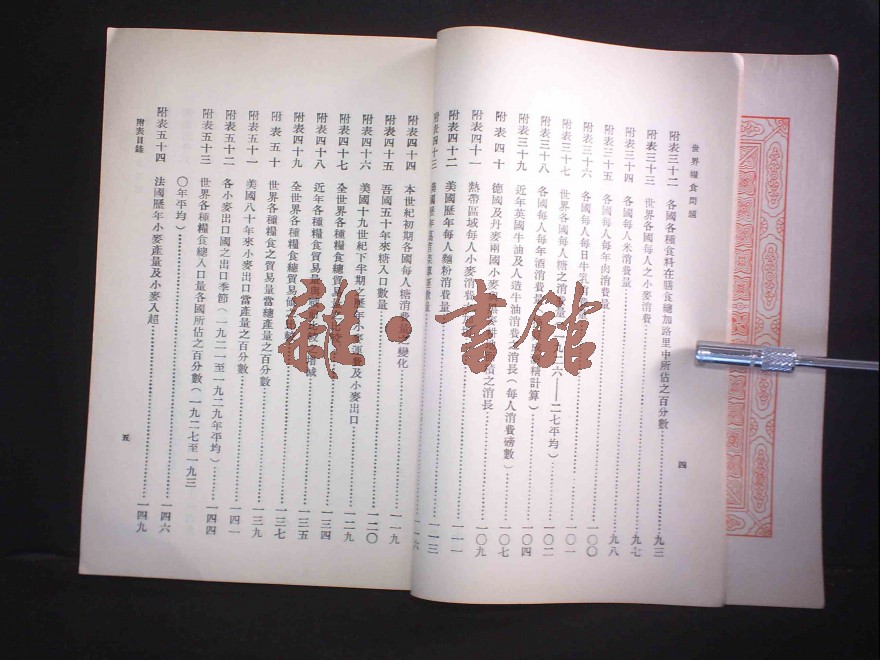 世界糧食問題
附表三十二 各國各種食料在膳食總加路里中所佔之百分數 九三
附表三十三 世界各國每人之小麥消費 九七
附表三十四 各國每人米消費量 九八
附表三十五 各國每人每年肉消費量
附表三十六 各國每人每日牛 一〇〇
附表三十七 世界各國每人糖之消費量 六——二七平均) 一〇一
附表三十八 各國每人每年酒消費量 精計算) 一〇二
附表三十九 近年英國牛油及人造牛油消費之消長(每人消費磅數) 一〇四
附表四十 德國及丹麥兩國小麥 之消長 一〇七
附表四十一 熱帶區域每人小麥消費 一〇九
附表四十二 美國歷年每人麵粉消費量 一一一
附表四十三 英國歷年 一一三
四
附表四十四 本世紀初期各國每人糖消費量之變化 一一六
附表四十五 吾國五十年來糖入口數量 一一九
附表四十六 美國十九世紀下半期之歷年小麥運費及小麥出口 一二〇
附表四十七 全世界各種糧食總貿易 一二九
附表四十八 近年各種糧食貿易量 增減 一三四
附表四十九 全世界各種糧食總貿易 一三五
附表五十 世界各種糧食之貿易量當總產量之百分數 一三七
附表五十一 美國八十年來小麥出口當產量之百分數 一三九
附表五十二 各小麥出口國之出口季節(一九二一至一九二九年平均) 一四一
附表五十三 世界各種糧食總入口量各國所佔之百分數(一九二七至一九三 一四四
〇年平均) 一四六
附表五十四 法國歷年小麥產量及小麥入超 一四九
附表目錄
五
雜·書館